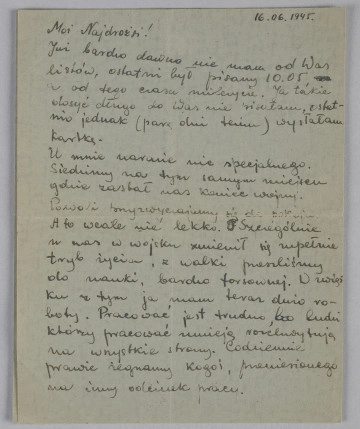 16.06.1945.
Moi Najdrożsi!
Już bardzo dawno nie mam od Was
listów, ostatni był pisany 10.05
i od tego czasu milczycie. Ja także
dosyć długo do Was nie pisałam, ostat-
nio jednak (parę dni temu) wysłałam
kartkę.
U mnie narazie nic specjalnego.
Siedzimy na tym samym miejscu
gdzie zastał nas koniec wojny.
Powoli przyzwyczajamy się do
A to wcale nie lekko. Szczególnie
u nas w wojsku zmienił się zupełnie
tryb życia, z walki przeszliśmy
do nauki, bardzo forsownej. W związ-
ku z tym ja mam teraz dużo ro-
boty. Pracować jest trudno bo ludzi
którzy pracować umieją rozchwytują
na wszystkie strony. Codziennie
prawie żegnamy kogoś, przeniesionego
na inny odcinek pracy.